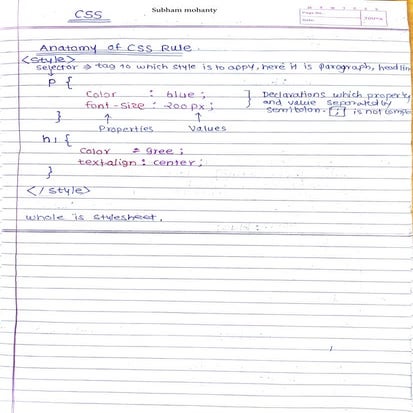 CSS
Subham mohanty
Page No.
Date:
Anatomy of CSS Rule.
<style>
selector ⇒ tag to which style is to appy, here it is paragraph, headlin
P {
Color : blue ; } Declarations which property
font-size : 200px ; and value separated by
semicolon. [;] is not
}
Properties Values
h1 {
Color : gree ;
text-align : center ;
}
</style>
whole is stylesheet.